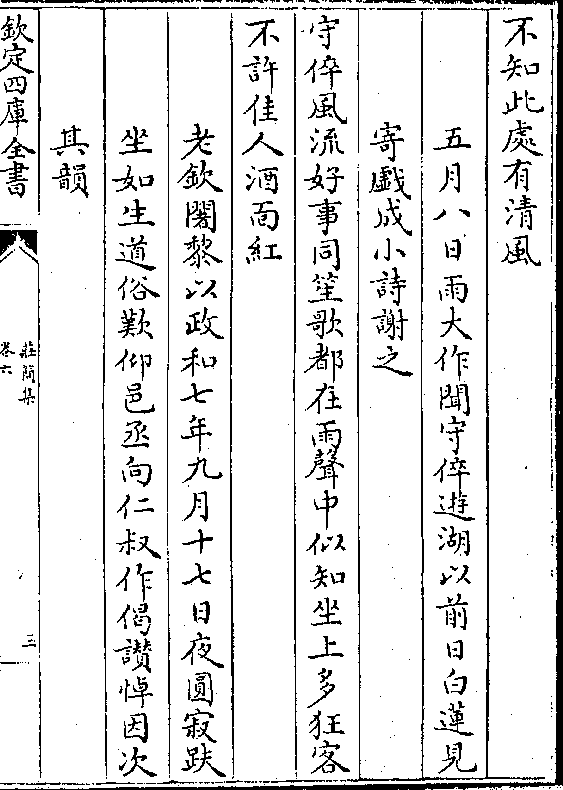 不知此處有清風
五月八日雨大作聞守倅遊湖以前日白蓮見
寄戯成小詩謝之
守倅風流好事同笙歌都在雨聲中似知坐上多狂客
不許佳人酒面紅
老欽闍黎以政和七年九月十七日夜圓寂趺
坐如生道俗歎仰邑丞向仁叔作偈讃悼因次
其韻
欽定四庫全書
莊簡集
卷六
三